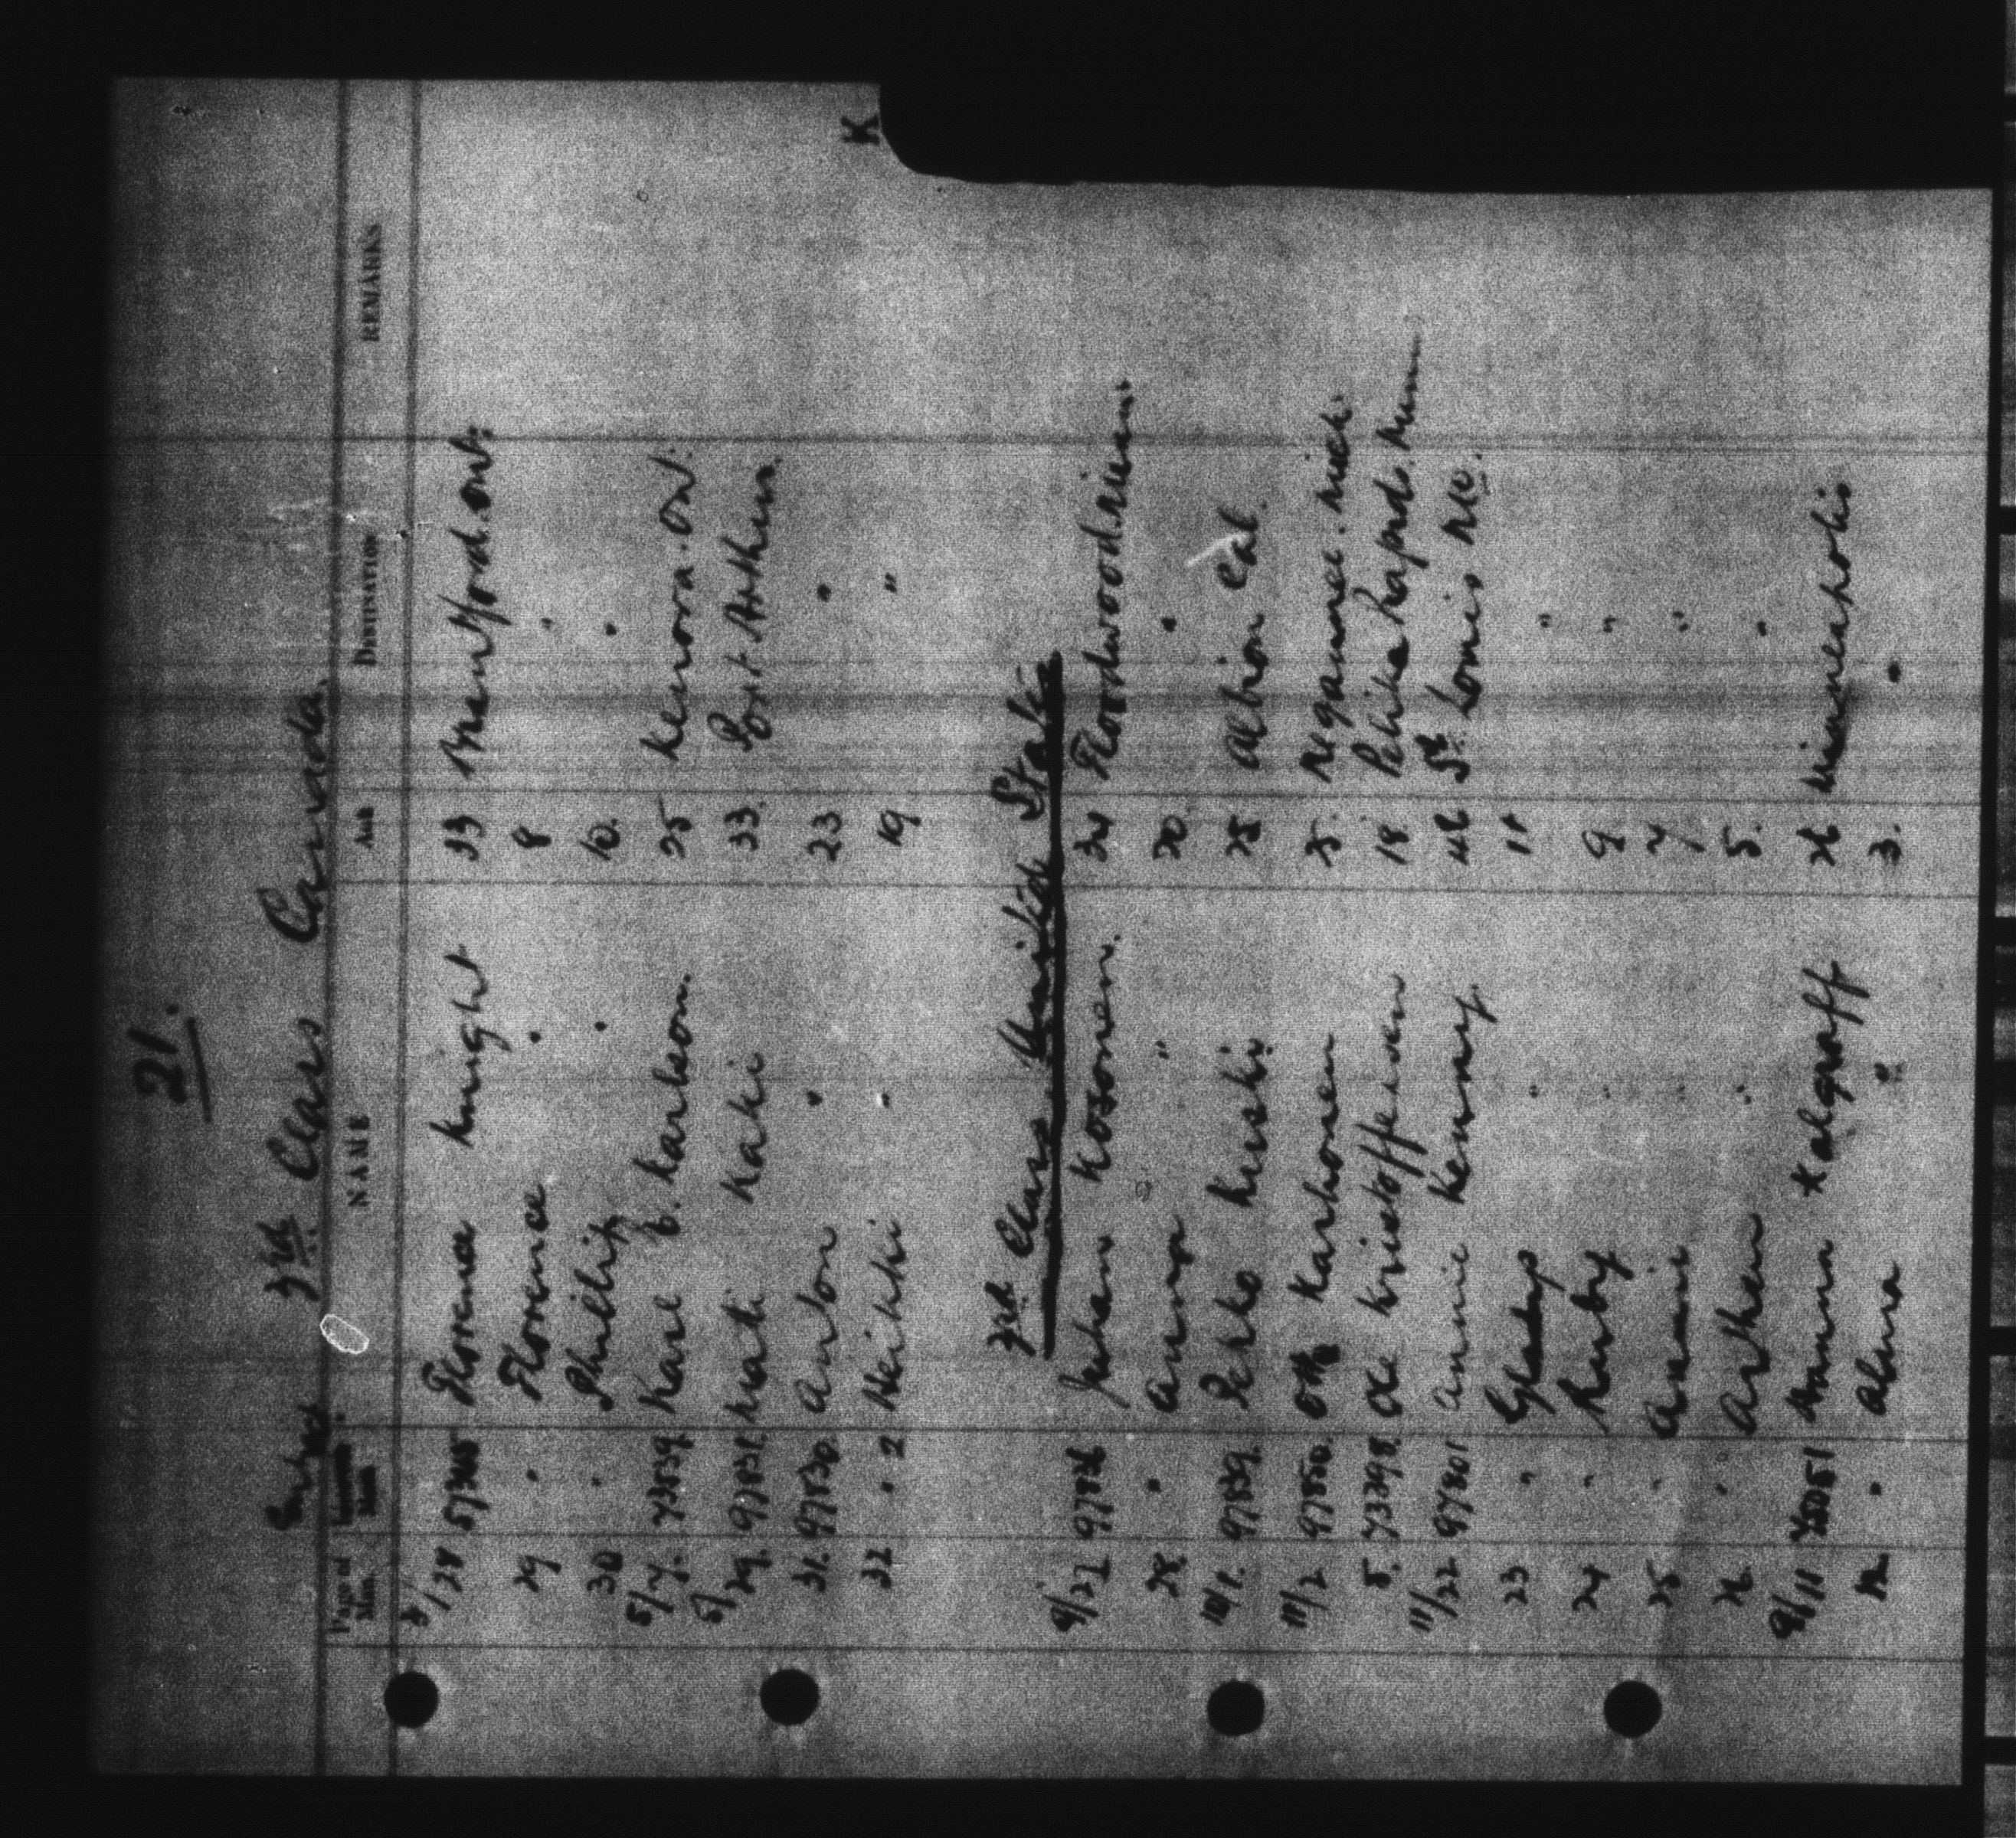 21.
3rd Class Canada.
Page of Man. NAME AGE DESTINATION REMARKS
K
/28 Florence Knight 33 Brantford. Ont.
29 " Florence " 8 "
30 " Phillip " 10. "
5/7. 73539. Karl E. Karlson. 25 Kenora. Ont.
5/29. Mati Kaki 33. Port Arthur.
31. 97830. Anton " 23 "
32 " 2 Heikki " 19 "
3rd Class United States
9/27 97836 Juhan Kosonen. 34 Floodwood. Minn.
28. " Anna " 30. "
10/1. 97839. Pekko Kuski. 25 Albion Cal.
11/2 97850. Otto Karhonen 25. Negaunee. Mich.
5. 73398. Ole Kristoffersen 18 Pelikan Rapids. Minn
11/22 97801 Annie Kenny. 46 St. Louis Mo.
23 " Gladys " 11 "
24 " " 9 "
25 " " 7 "
26. " Arthur " 5. "
9/11 Kalgraff 26 Minneapolis
12 " Alma " 3. "